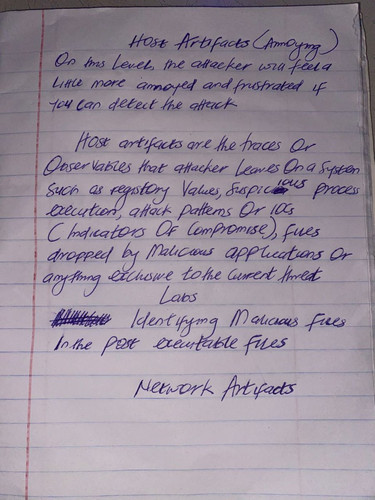 Host Artifacts (Annoying)
On this level, the attacker will feel a
little more annoyed and frustrated if
you can detect the attack
Host artifacts are the traces or
observables that attacker leaves on a system
such as registory values, suspicious process
execution, attack patterns or IOCs
(Indicators Of Compromise), files
dropped by malicious applications or
anything exclusive to the current threat
Labs
Identifying Malicious files
In the post executable files
Network Artifacts